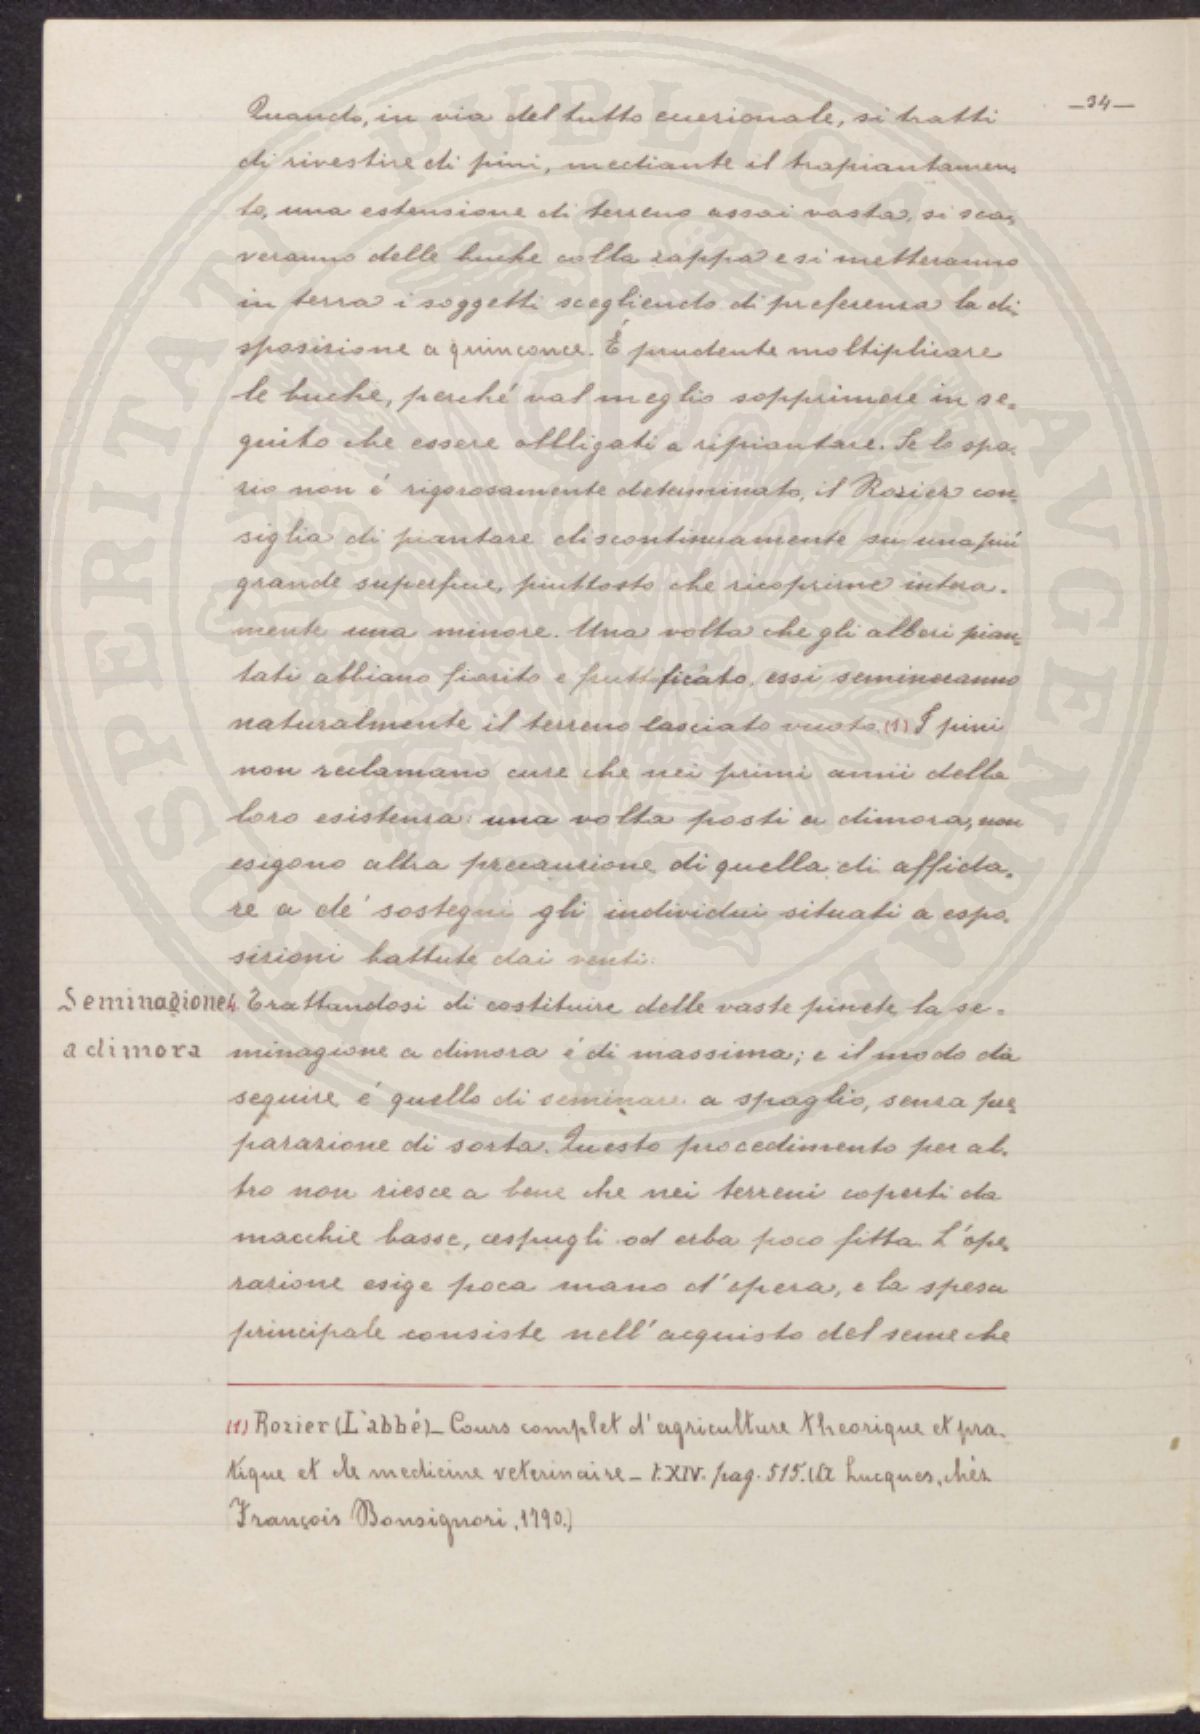 —34—
Quando, in via del tutto eccezionale, si tratti
di rivestire di pini, mediante il trapiantamen-
to, una estensione di terreno assai vasta, si sca-
veranno delle buche colla zappa e si metteranno
in terra i soggetti scegliendo di preferenza la di-
sposizione a quinconce. É prudente moltiplicare
le buche, perché val meglio sopprimere in se-
guito che essere obbligati a ripiantare. Se lo spa-
zio non é rigorosamente determinato, il Rozier con-
siglia di piantare discontinuamente su una piú
grande superficie, piuttosto che ricoprirne intera-
mente una minore. Una volta che gli alberi pian-
tati abbiano fiorito e fruttificato, essi semineranno
naturalmente il terreno lasciato vuoto. (1) I pini
non reclamano cure che nei primi anni della
loro esistenza: una volta posti a dimora, non
esigono altra precauzione di quella di affida-
re a de' sostegni gli individui situati a espo-
sizioni battute dai venti.
Seminagione
a dimora
4. Trattandosi di costituire delle vaste pinete, la se-
minagione a dimora é di massima; e il modo da
seguire é quello di seminare a spaglio, senza pre-
parazione di sorta. Questo procedimento per al-
tro non riesce a bene che nei terreni coperti da
macchie basse, cespugli od erba poco fitta. L'ope-
razione esige poca mano d'opera, e la spesa
principale consiste nell'acquisto del seme che
(1) Rozier (L'abbé) — Cours complet d'agriculture theorique et pra-
tique et de medicine veterinaire — t. XIV. pag. 515. (a Lucques, chéz
François Bonsignori, 1790.)
SPERITATI PVBLICAE AVGENDAE